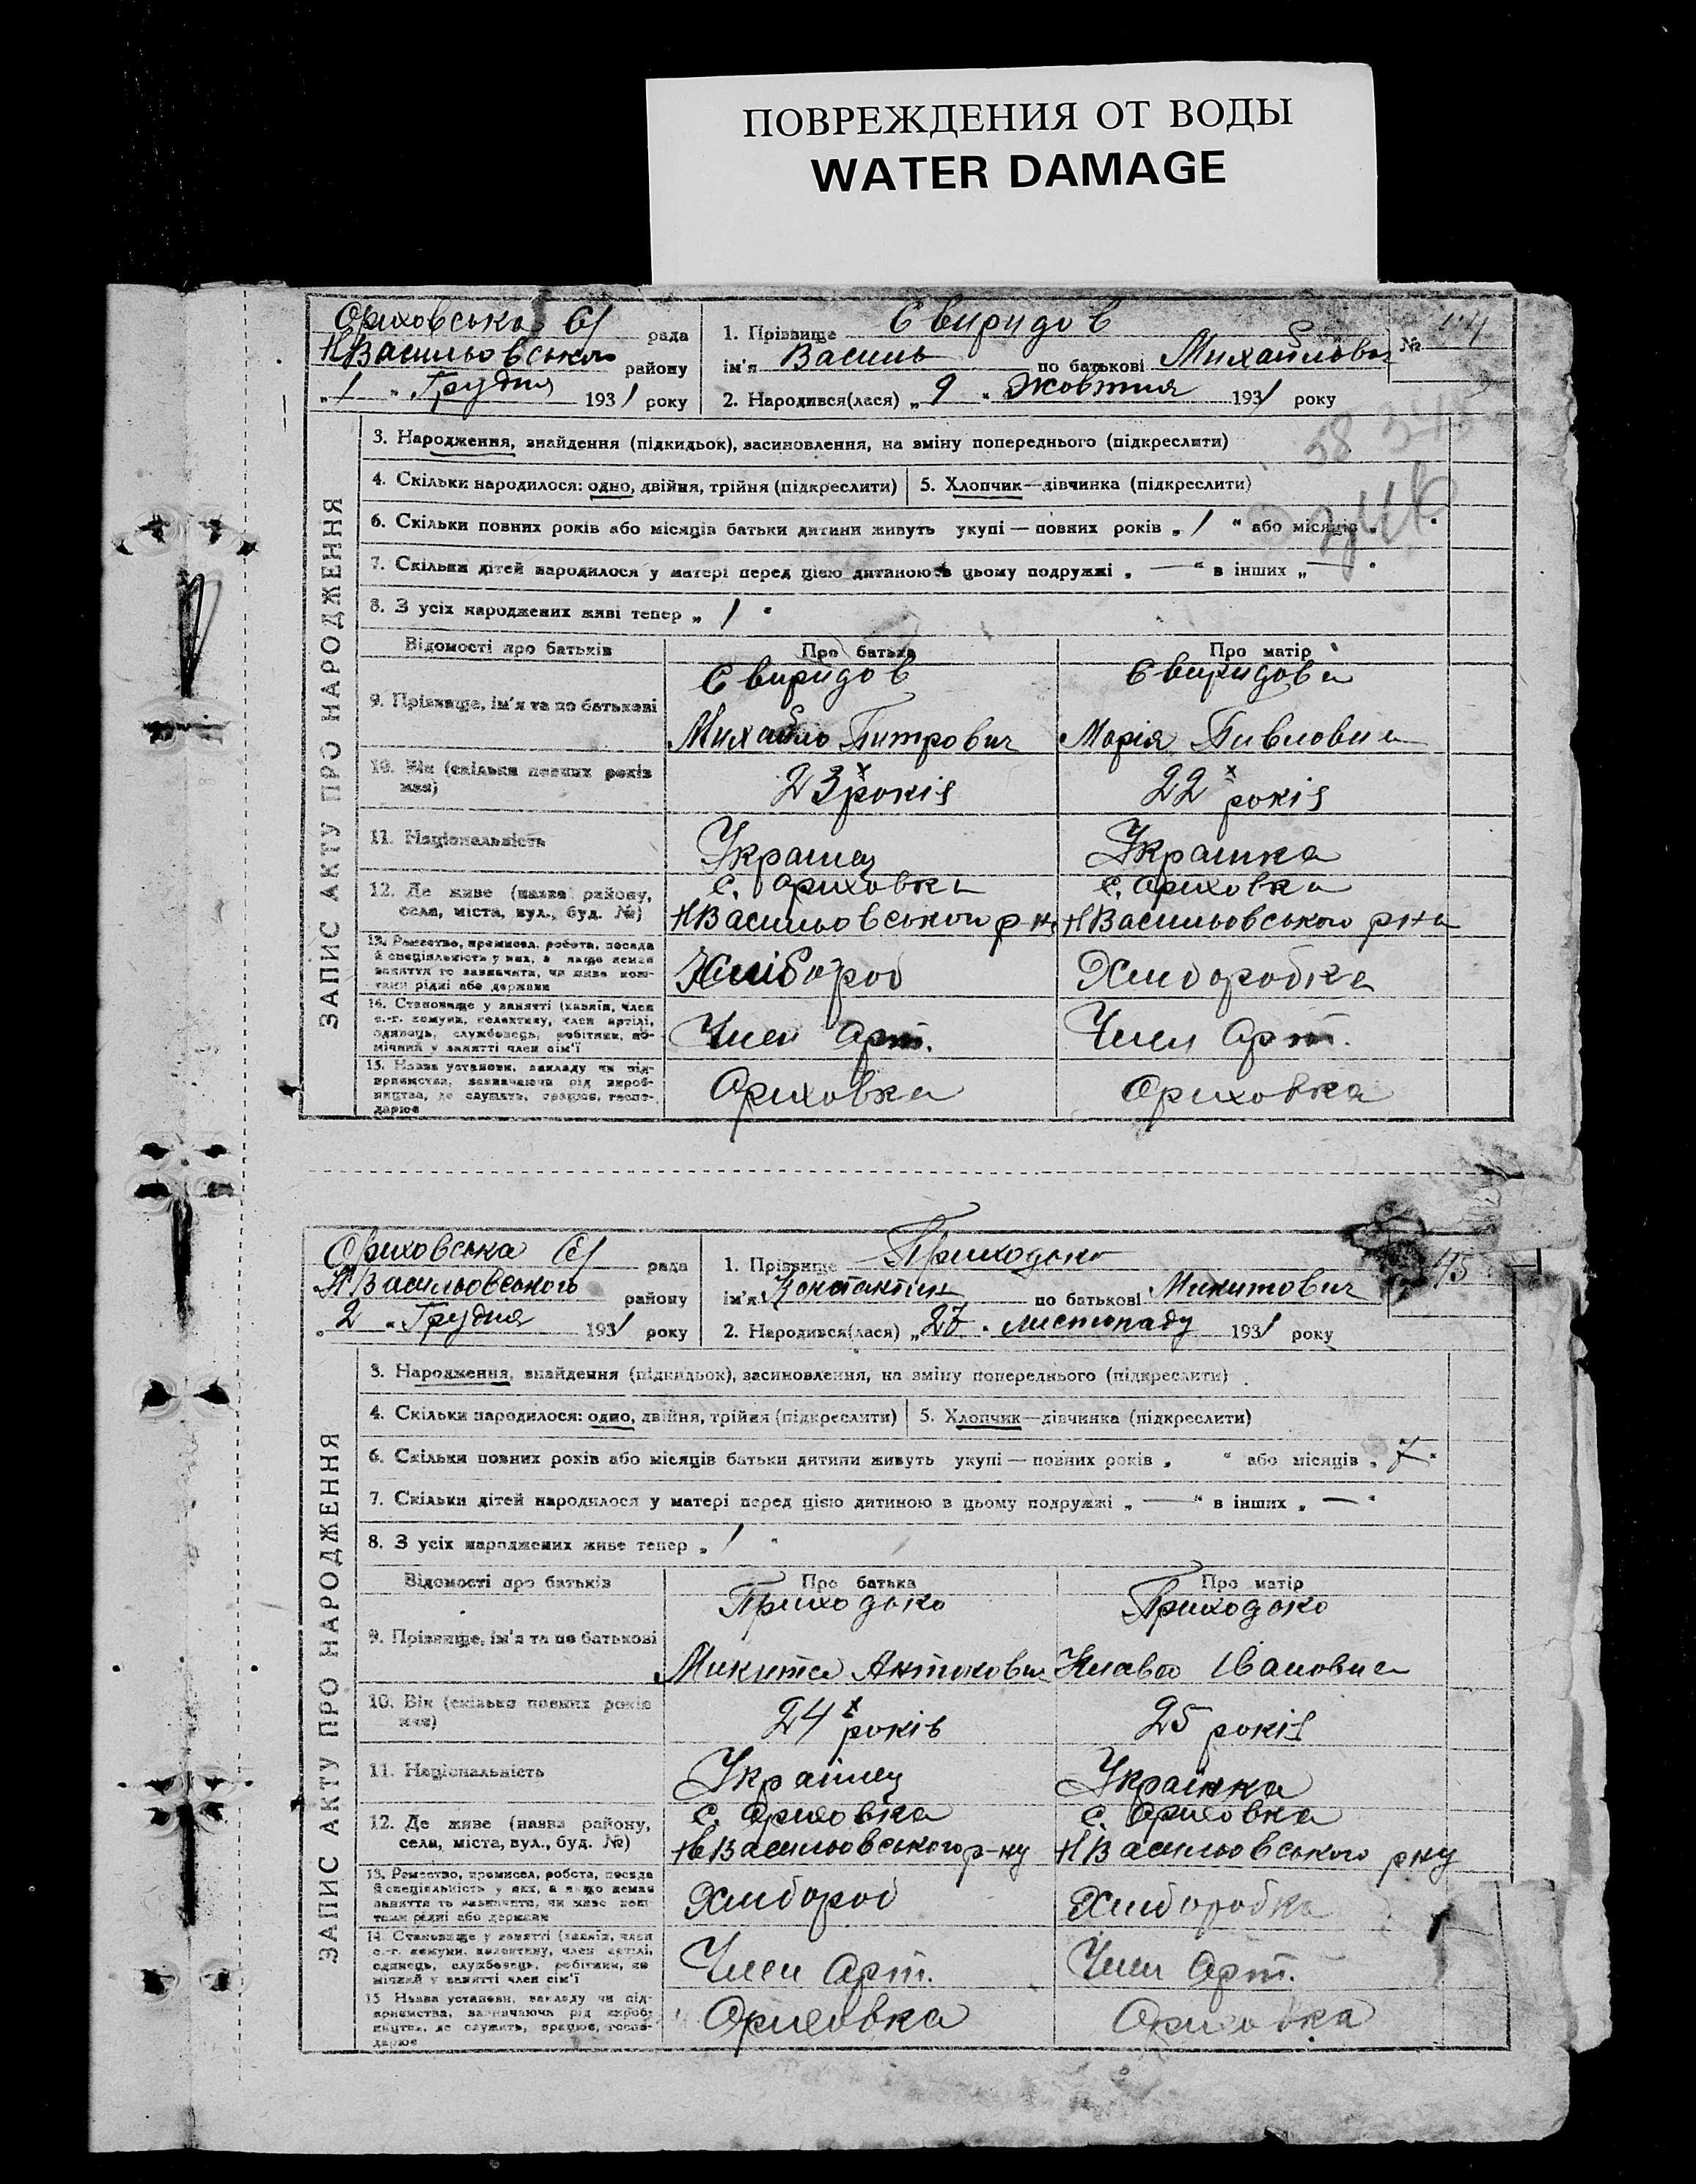 ПОВРЕЖДЕНИЯ ОТ ВОДЫ
WATER DAMAGE
Ориховська С/ рада
НВасильовського району
„1 " Грудня 1931 року
1. Прізвище Свиридов
ім'я Василь по батькові Михайлович
2. Народився(лася) „9 " Жовтня 1931 року
№
ЗАПИС АКТУ ПРО НАРОДЖЕННЯ
3. Народження, знайдення (підкидьок), засиновлення, на зміну попереднього (підкреслити)
4. Скільки народилося: одно, двійня, трійня (підкреслити)
5. Хлопчик—дівчинка (підкреслити)
6. Скільки повних років або місяців батьки дитини живуть укупі — повних років „ 1 " або місяців „ "
7. Скільки дітей народилося у матері перед цією дитиною в цьому подружжі „ — " в інших „ — "
8. З усіх народжених живі тепер „ 1 "
Відомості про батьків Про батька Про матір
9. Прізвище, ім'я та по батькові
Свиридов Свиридова
Михайло Питрович Марія Пивловна
10. Вік (скільки повних років має)
23 років 22 років
11. Національність
Украинец Украинка
12. Де живе (назва району, села, міста, вул., буд. №)
с. Ориховка с. Ориховка
НВасильовського р-н НВасильовського рна
13. Ремество, промисел, робота, посада
й спеціяльність у них, а якщо немає
заняття то зазначити, чи живе кош-
тами рідні або держави
Хлібороб Хлиборобка
14. Становище у занятті (хазяїн, член
с.-г. комуни, колективу, член артілі,
одинець, службовець, робітник, по-
мічний у занятті член сім'ї
Член Арт. Член Арт.
15. Назва установи, закладу чи під-
приємства, зазначаючи рід вироб-
ництва, де служить, працює, госпо-
дарює
Ориховка Ориховка
Ориховська С/ рада
НВасильовського району
„2 " Грудня 1931 року
1. Прізвище Приходько
ім'я Константин по батькові Микитович
2. Народився(лася) „27 " листопаду 1931 року
45
ЗАПИС АКТУ ПРО НАРОДЖЕННЯ
3. Народження, знайдення (підкидьок), засиновлення, на зміну попереднього (підкреслити)
4. Скільки народилося: одно, двійня, трійня (підкреслити)
5. Хлопчик—дівчинка (підкреслити)
6. Скільки повних років або місяців батьки дитини живуть укупі — повних років „ " або місяців „ 7 "
7. Скільки дітей народилося у матері перед цією дитиною в цьому подружжі „ — " в інших „ — "
8. З усіх народжених живе тепер „ 1 "
Відомості про батьків Про батька Про матір
9. Прізвище, ім'я та по батькові
Приходько Приходько
Микита Антонович Клавa Івановна
10. Вік (скільки повних років має)
24 років 25 років
11. Національність
Украінец Украінка
12. Де живе (назва району, села, міста, вул., буд. №)
с. Ориховка с. Ориховка
НВасильовського р-ну НВасильовського рну
13. Ремество, промисел, робота, посада
й спеціяльність у них, а якщо немає
заняття то зазначити, чи живе кош-
тами рідні або держави
Хлибороб Хлиборобка
14. Становище у занятті (хазяїн, член
с.-г. комуни, колективу, член артілі,
одинець, службовець, робітник, по-
мічний у занятті член сім'ї
Член Арт. Член Арт.
15 Назва установи, закладу чи під-
приємства, зазначаючи рід вироб-
ництва, де служить, працює, госпо-
дарює
Ориховка Ориховка